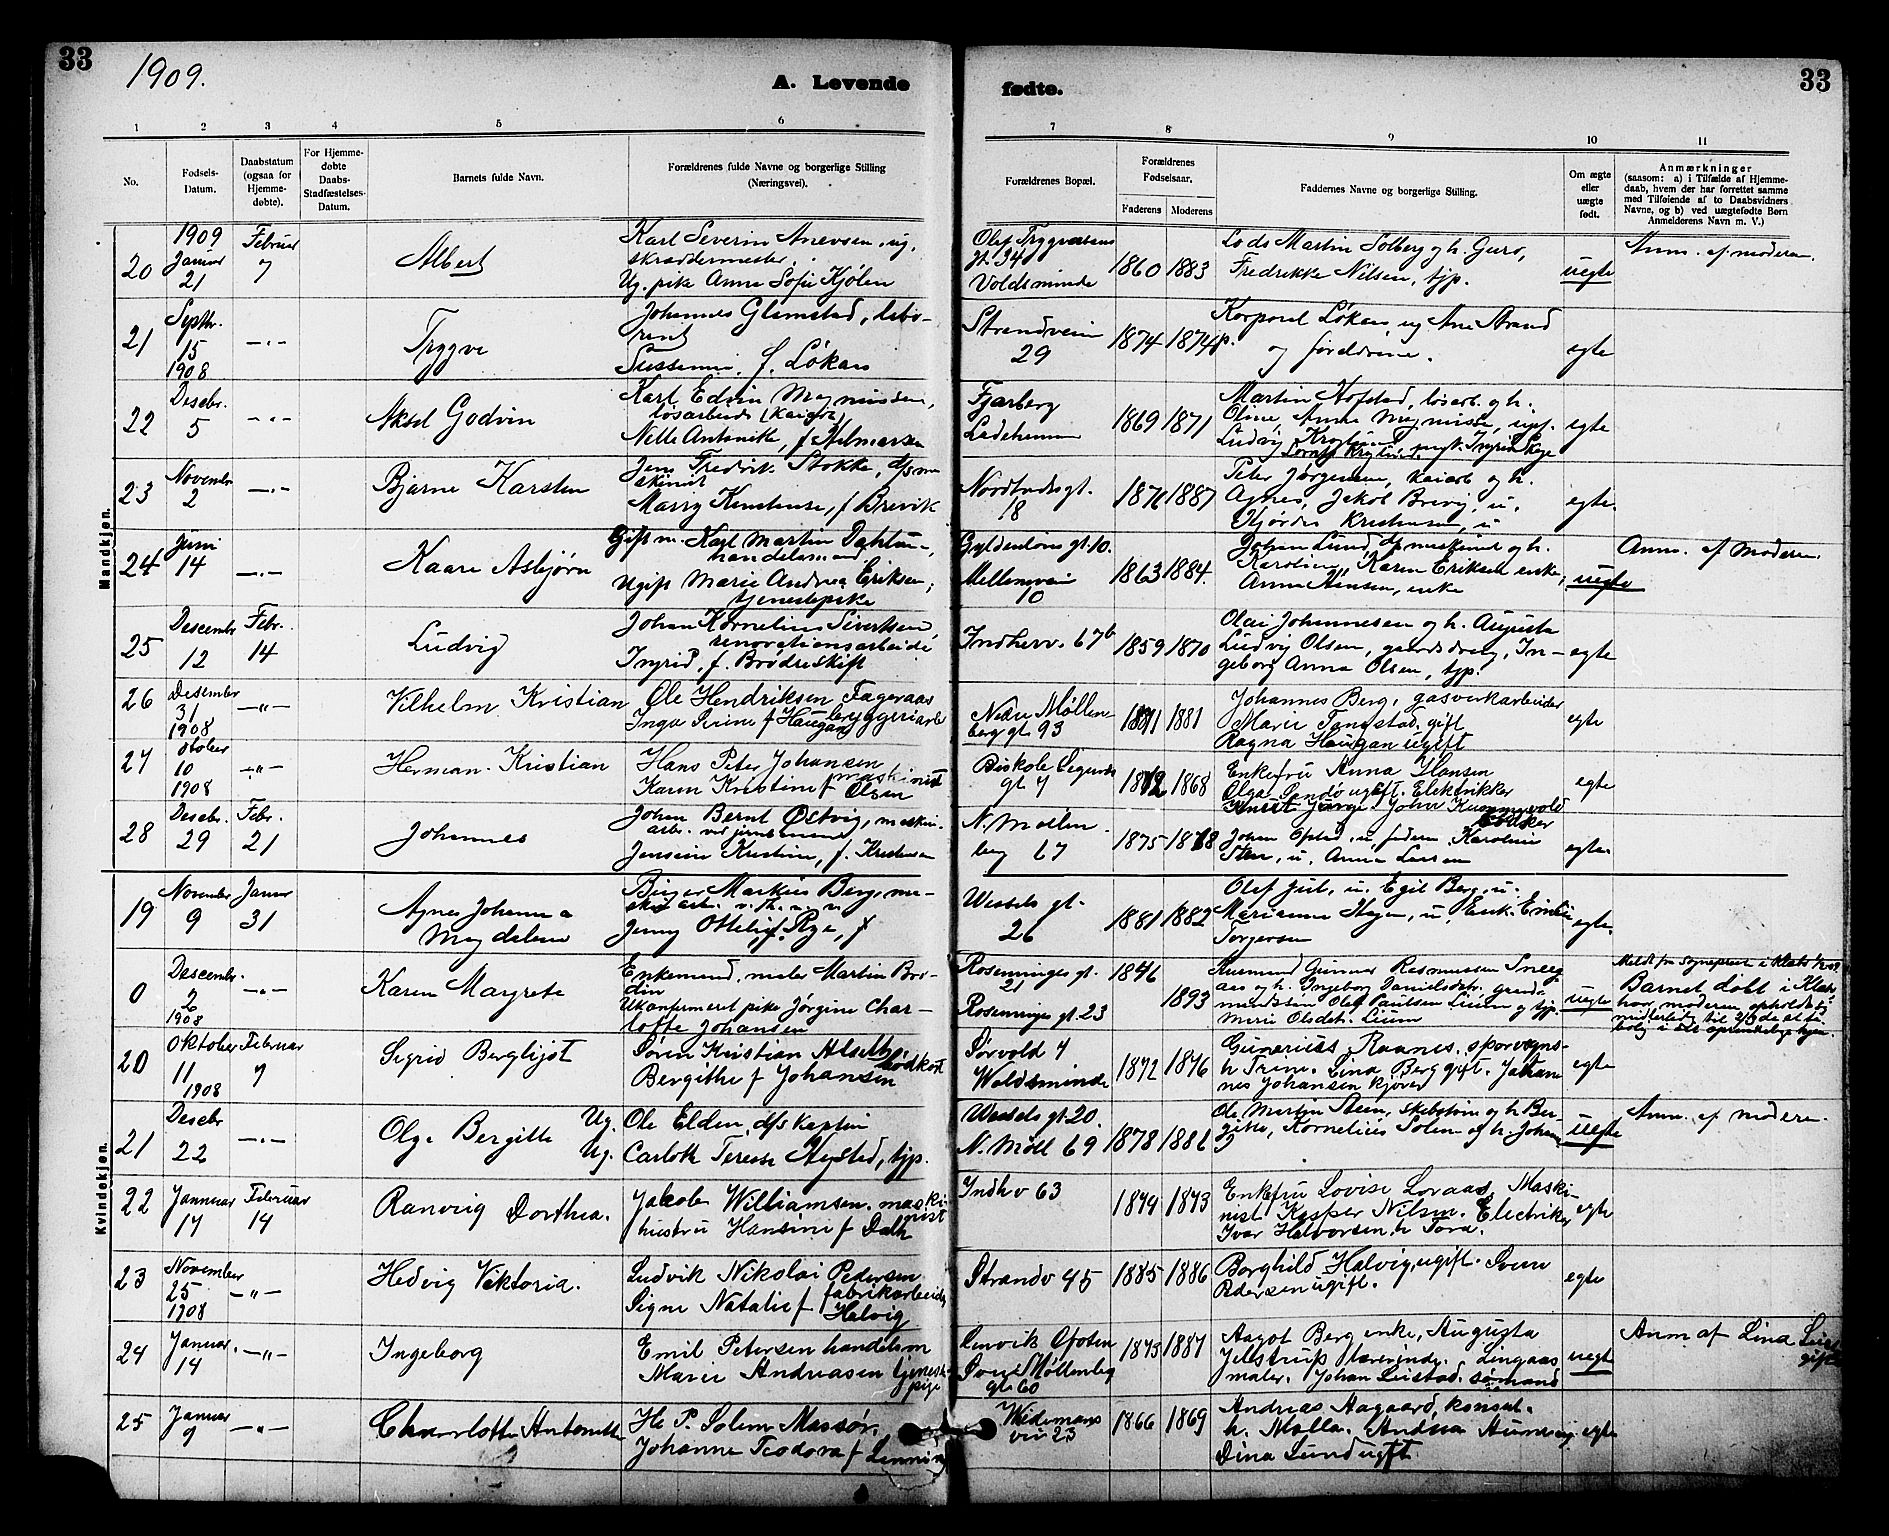 33
1909.
A. Levende
fødte.
33
1 2 3 4 5 6 7 8 9 10 11
No.
Fødsels-
Datum.
Daabsdatum
(ogsaa for
Hjemme-
døbte).
For Hjemme-
døbte
Daabs-
Stadfæstelses-
Datum.
Barnets fulde Navn.
Forældrenes fulde Navne og borgerlige Stilling
(Næringsvei).
Forældrenes Bopæl.
Forældrenes
Fødselsaar.
Faderens
Moderens
Faddernes Navne og borgerlige Stilling.
Om ægte
eller
uægte
født.
Anmærkninger
(saasom: a) i Tilfælde af Hjemme-
daab, hvem der har forrettet samme
med Tilføiende af to Daabsvidners
Navne, og b) ved uægtefødte Børn
Anmelderens Navn m. V.)
Mandkjøn.
20
1909
Januar
21
Februar
7
Albert
Karl Severin Anevsen, ug.
skræddermester.
Ug. pike Anna Sofie Kjølen
Olaf Trygvasons
gt. 34
Voldsminde
1860 1883
Lods Martin Solberg og h. Guro,
Fredrikke Nilsen, tjp.
uegte
Anm. af moderen.
21
Septbr.
15
1908
-"-
Trygve
Johannes Glimstad, labo-
rent
f. Løkan
Strandveien
29
1874 1874
Korporal Løkan, ug Ane Strand
og forældrene.
egte
22
Desebr.
5
-"-
Aksel Godvin
Karl Edvin Magnussen,
løsarbeider
Nelle Antonette, f. Hilmarsen
Fjærberg
Ladehammeren
1869 1871
Martin Hofstad, løsarb. og h.
Oline, Anna Magnussen, ugift,
Ludvig
egte
23
Novembr
2
-"-
Bjarne Karsten
Jens Fredrik Stokke, dpsma
skinist
f. Brevik
18
1876 1887
Peter Jørgensen, kaiarb. og h.
Agnes, Jakob Brevig, u.
Hjørdis Kristensen, u
egte.
24
Juni
14
-"-
Kaare Asbjørn
Gift m. Karl Martin Dahlum,
handelsmand
Ugift Marie Andrea Eriksen,
tjenestepike
Gyldenløvs gt. 10.
Mellemveien
10
1863 1884.
Johan Lund, dpsmaskinist og h.
Karoline, Karen Eriksen enke,
Anna Hansen, enke
uegte
Anm. af moderen.
25
Descembr
12
Febr.
14
Ludvig
Johan Kornelius Sivertsen,
renovationsarbeider
Ingrid, f. Brødreskift
Indherv. 67b
1859 1870
Olai Johannesen og h. Augusta
Ludvig Olsen, gaardsdreng, In-
geborg Anna Olsen, tjp.
egte
26
Desember
31
1908
-"-
Vilhelm Kristian
Ole Hendriksen Fageraas
bryggeriarb
Inga Serine f Haugan
Nedre Møllen-
berg gt. 93
1871 1881
Johannes Berg, gasverkarbeider
Marie Tangstad, gift
Ragna Haugan ugift
egte
27
Otober
10
1908
-"-
Herman Kristian
Hans Peter Johansen
maskinist
Karen Kristine f Olsen
Biskop Sigurds
gt 7
1872 1868
Enkefru Anna Hansen
Olga Sandø ugift. Elektrikker
egte
28
Desebr.
29
Febr.
21
Johannes
Johan Bernt Østvig, maskin-
arb. ved jernbanen
Jensine Kristine, f. Kristensen
N. Møllen-
berg 67
1875 1878
Johan Opstad, u, faderen, Karoline
Steen, u, Anna Larsen
egte.
Kvindekjøn.
19
November
9
Januar
31
Agnes Johanna
Magdalena
Birger Markus Berg, ma-
Jenny Ottelie, f. Rye, f
Wessels gt.
26
1881 1882
Olaf Juul, u. Egil Berg, u.
Marianne Hagen, u, Enk. Emilie
Torgersen
egte.
0
Descembr.
2
1908
-"-
Karen Margrete
Enkemand, maler Martin Bro-
din
Ukonfirmeret pike Jørgine Char-
lotte Johansen
Rosenvinges gt.
21
Rosenvinges gt. 23
1846
1893
Husmand Gunnar Rasmussen Sneeg-
aas og h. Ingeborg Danielsdtr. gaard-
mandssøn Olaf Paulsen Lium og tjp.
Marie Olsdtr. Lium
uegte
Barnet døbt i Klæbu
hvor moderen opholdt sig
20
Oktober
11
1908
Februar
7
Sigrid Bergljot
Søren Kristian Alseth,
Bergithe f Johansen
Sørvold 4
Woldsminde
1872 1876
Gunerius Raanes, sporvogns-
h Trine. Lina Berg gift. Johan
nes Johansen kjører
egte
21
Desebr
22
-"-
Olga Bergitte
Ug. Ole Elden, dps kaptein
Ug. Carlotte Terese Hegstad, tjp.
Wessels gt. 20.
N. Møll 69
1878 1881
Ole Martin Steen, skibstøm og h Ber-
gitte, Kornelius Solem og h. Johanna
uegte
Anm. af moderen.
22
Jannuar
17
Februar
14
Ranveig Dorthea.
Jakob Williamsen. maski-
nist
hustru Hansine f Dahl
Indhv 63
1874 1873
Enkefru Lovise Loraas, Maski-
nist Kasper Nilsen. Electriker
Ivar Halvorsen. h Tora.
egte
23
November
25
1908
-"-
Hedvig Viktoria.
Ludvik Nikolai Pedersen
fabrikarbeider
Signe Natalie f Halvig
Strandv 45
1885 1886
Borghild Halvig, ugift. Sven
Pedersen ugift.
egte
24
Januar.
14
-"-
Ingeborg
Emil Petersen handelsm
Marie Andreasen tjeneste
pige
Lenvik Ofoten
Øvre Møllenberg
gt 60
1875 1887
Aagot Berg enke, Augusta
Jelstrup lærerinde. Lingaas
maler. Johan Leistad. sømand
uegte
Anm af Lina Leistad
gift
25
Januar
9
-"-
Charlotte Antonette
H. P. Solem Massør.
Johanne Teodora f
Widemans
vei 23
1866 1869
Andreas Aagaard, konsul.
h. Malla. Andrea
Dina Lund ugift.
egte